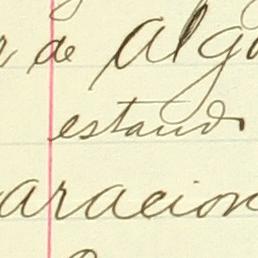 r de algu
estando
aracion